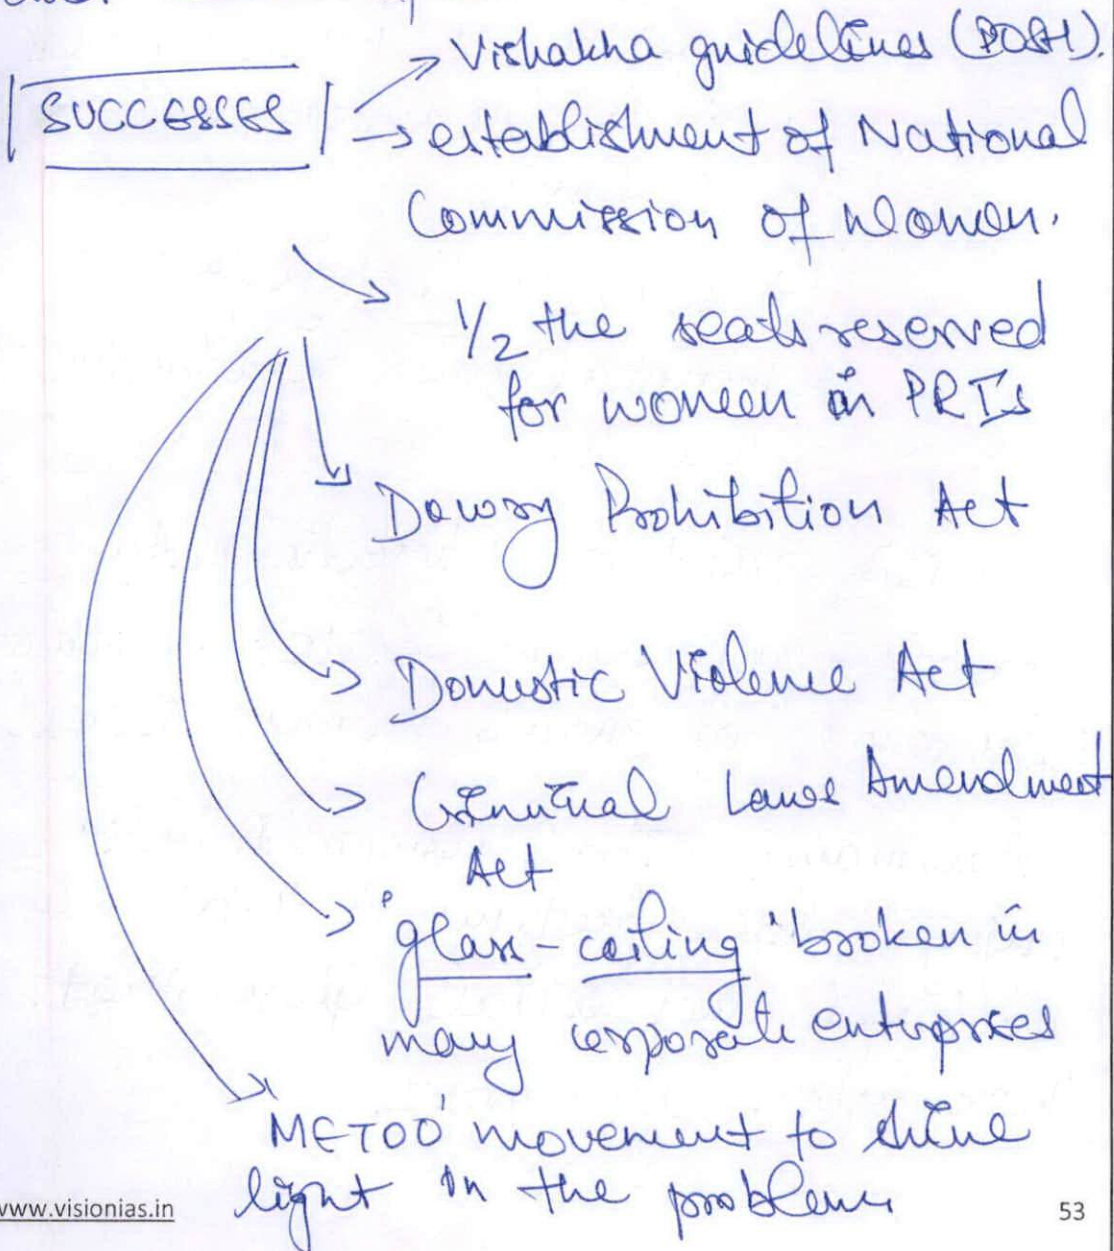 SUCCESSES
→ Vishakha guidelines (POSH).
→ establishment of National
Commission of Women.
1/2 the seats reserved
for women in PRIs
Dowry Prohibition Act
Domestic Violence Act
Criminal Laws Amendment
Act
'glass-ceiling' broken in
many corporate enterprises
'METOO' movement to shine
light in the problems
www.visionias.in
53